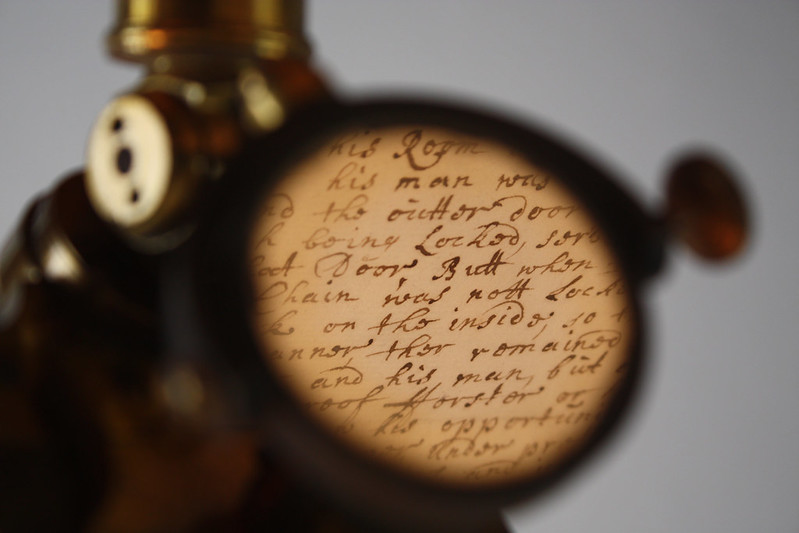 his Room
his man was
the outter door
being Locked,
Door Butt when
Chain was nott Lock
on the inside, so
ther remained
and his man, but
Forster or
his opportun
under
and